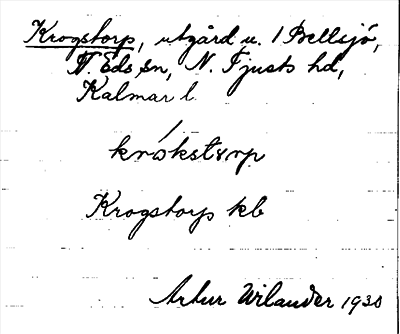 Krogstorp, utgård u. 1 Bellsjö,
V. Eds sn, N. Tjusts hd,
Kalmar l
krokstorp
Krogstorp kb
Artur Wilander 1930